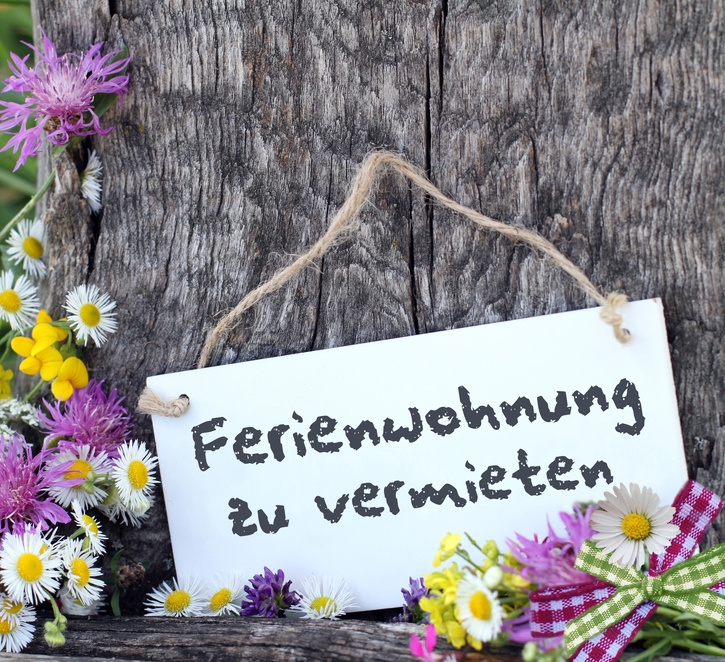 Ferienwohnung
zu vermieten